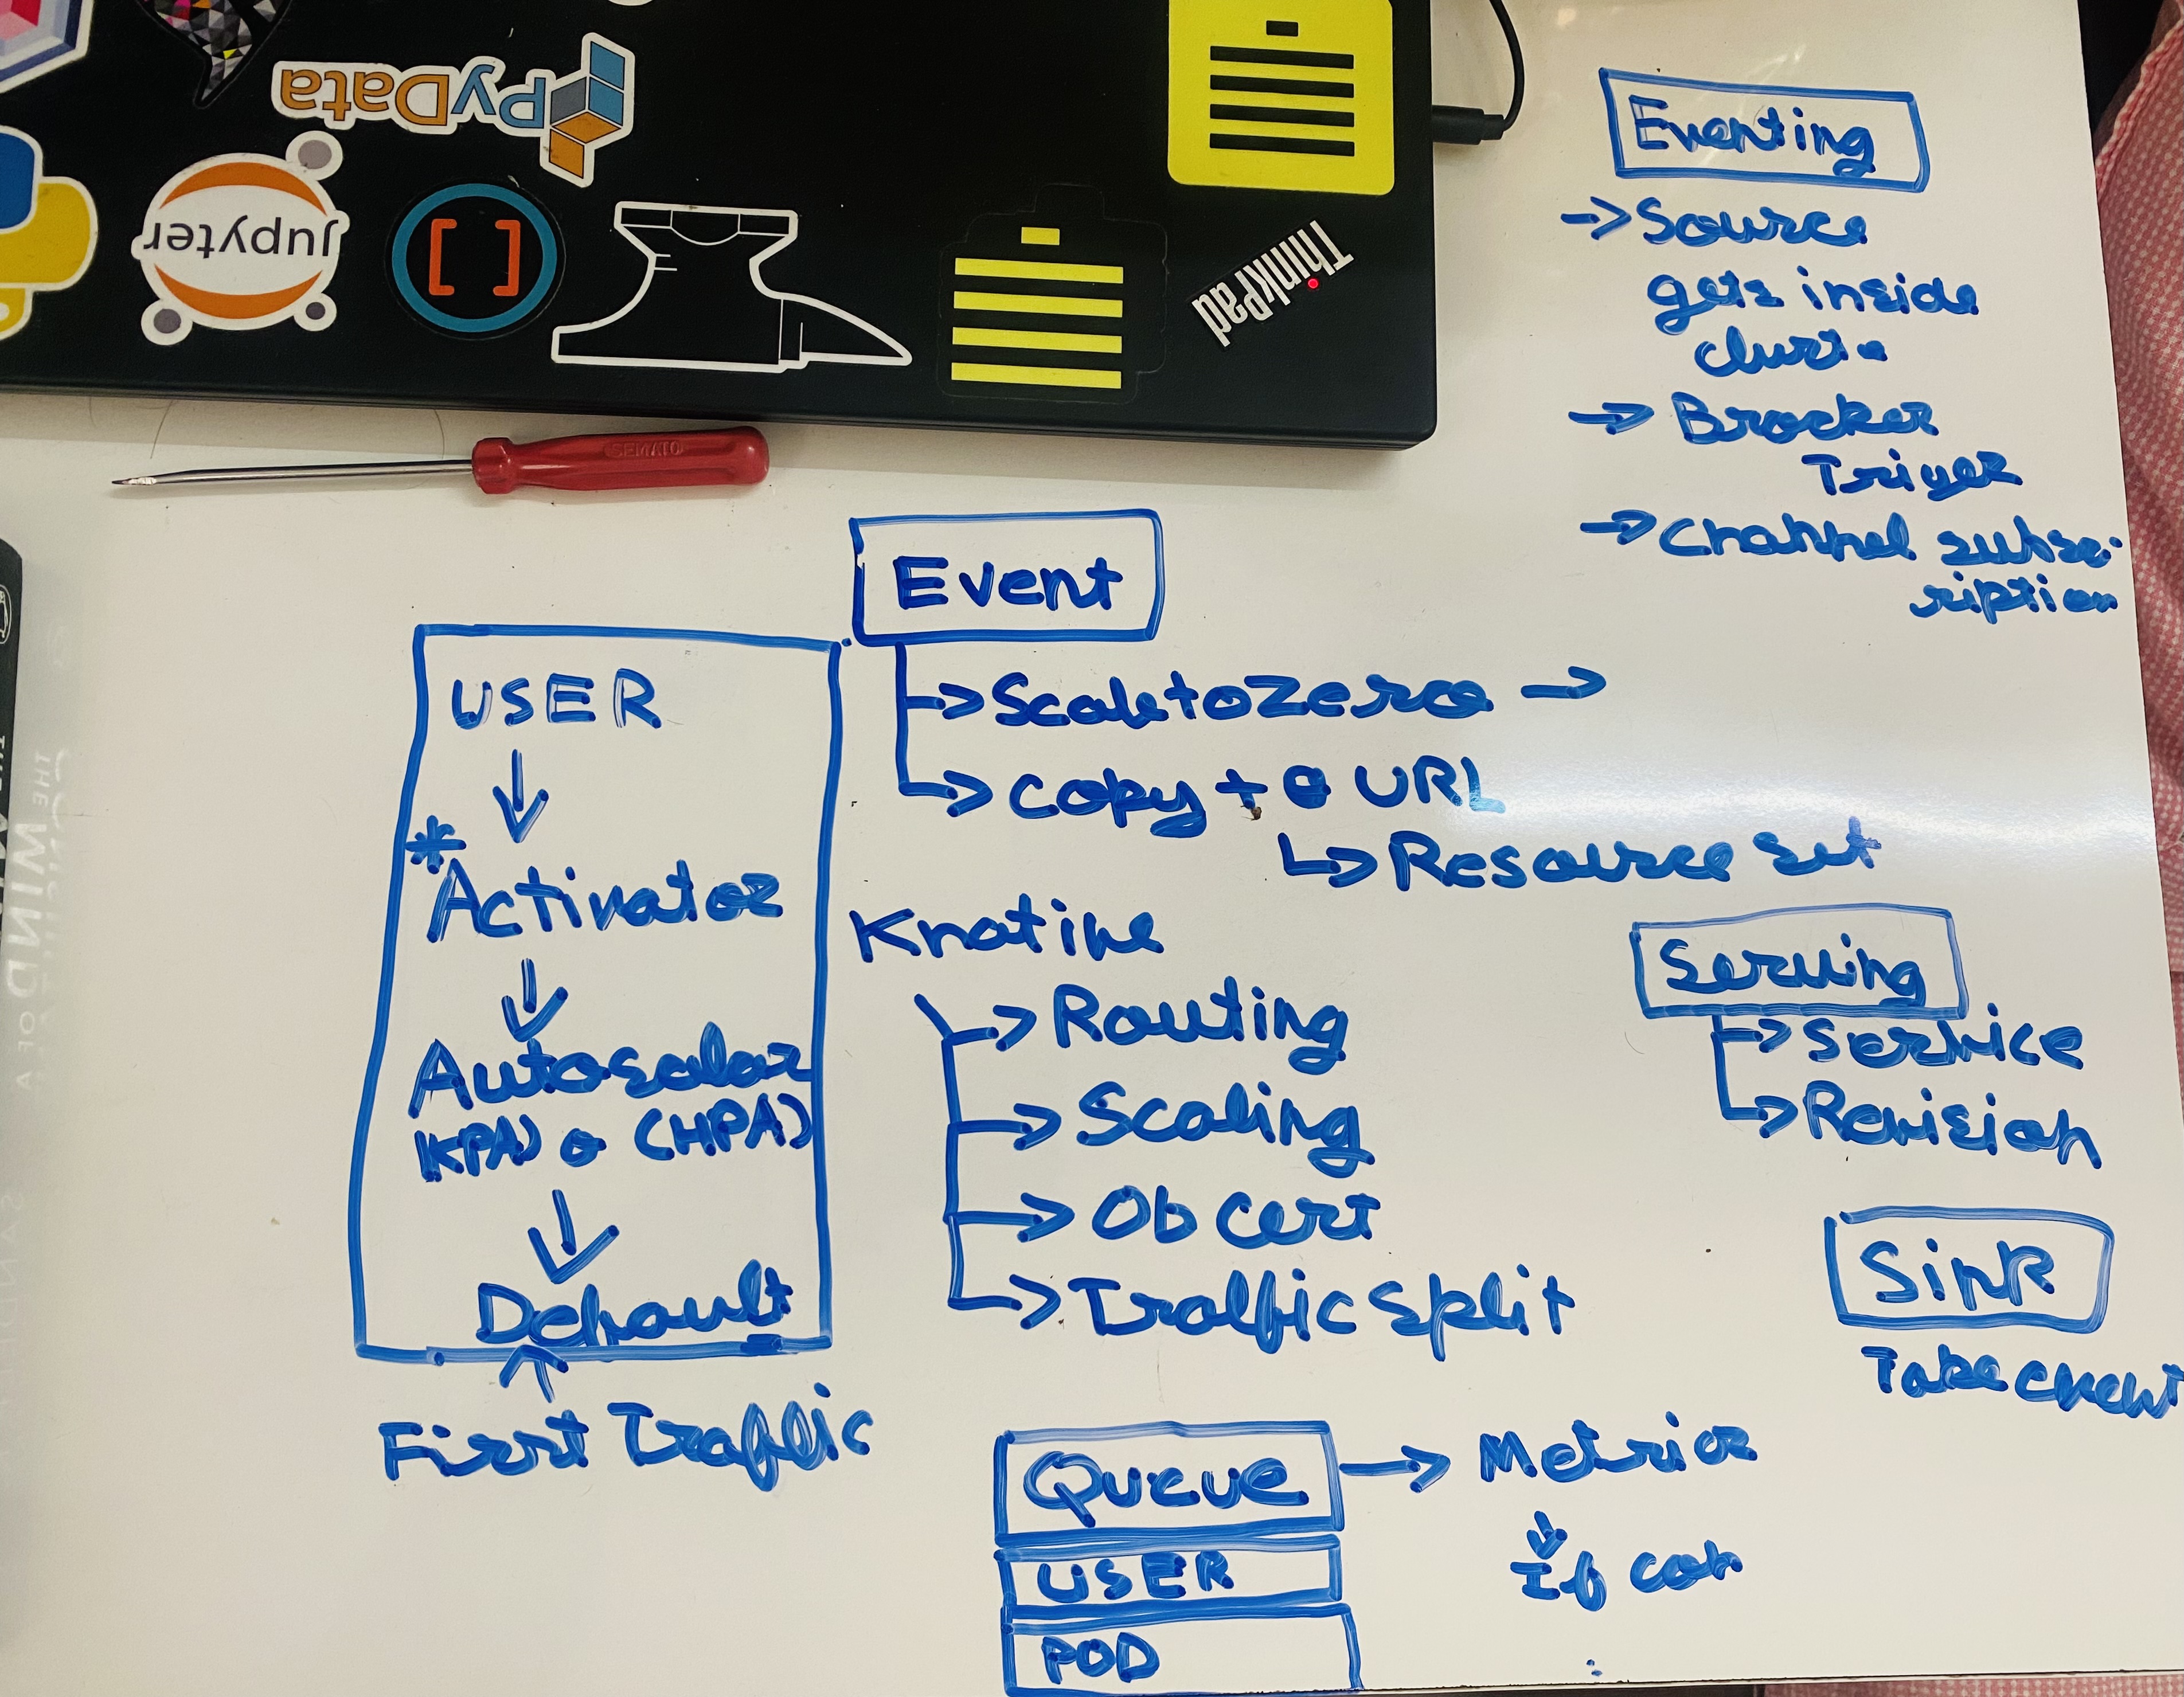 PyData
Jupyter
[ ]
ThinkPad
SEMATO
Eventing
→ Source
gets inside
→ Brocker
Triger
→ Channel subsc-
ription
Event
→ Scale to Zero →
→ Copy + URL
↳ Resource set
USER
↓
* Activator
↓
Autoscalar
(KPA) (HPA)
↓
Default
First Traffic
Knative
→ Routing
→ Scaling
→ Ob Cert
→ Traffic Split
Serving
→ Service
→ Revision
Sink
Take event
Queue → Metrics
USER
POD
If can
THE WIND OF A